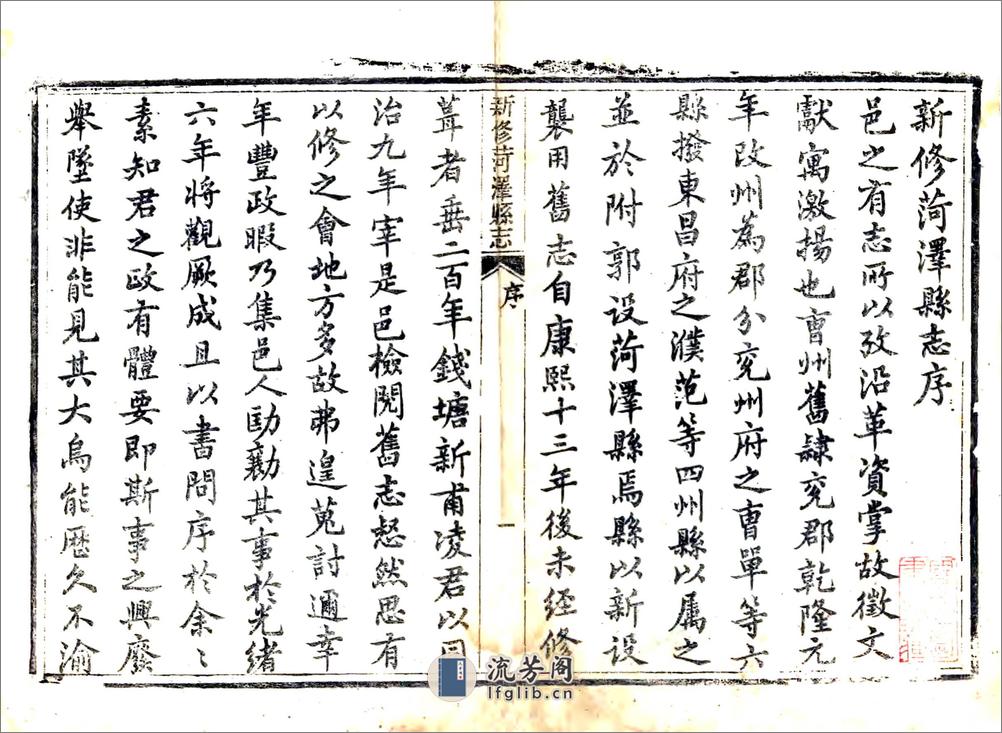 新修菏澤縣志序
邑之有志所以攷沿革資掌故徵文
獻寓激揚也曹州舊隸兗郡乾隆元
年改州為郡分兗州府之曹單等六
縣撥東昌府之濮范等四州縣以属之
並於附郭設菏澤縣焉縣以新設
襲用舊志自康熙十三年後未經修
新修菏澤縣志
序
一
葺者垂二百年錢塘新甫凌君以同
治九年宰是邑檢閱舊志惄然思有
以修之會地方多故弗遑蒐討邇幸
年豐政暇乃集邑人劻勷其事於光緒
六年將觀厥成且以書問序於余〻
素知君之政有體要即斯事之興廢
舉墜使非能見其大烏能歷久不渝
流芳阁
lfglib.cn